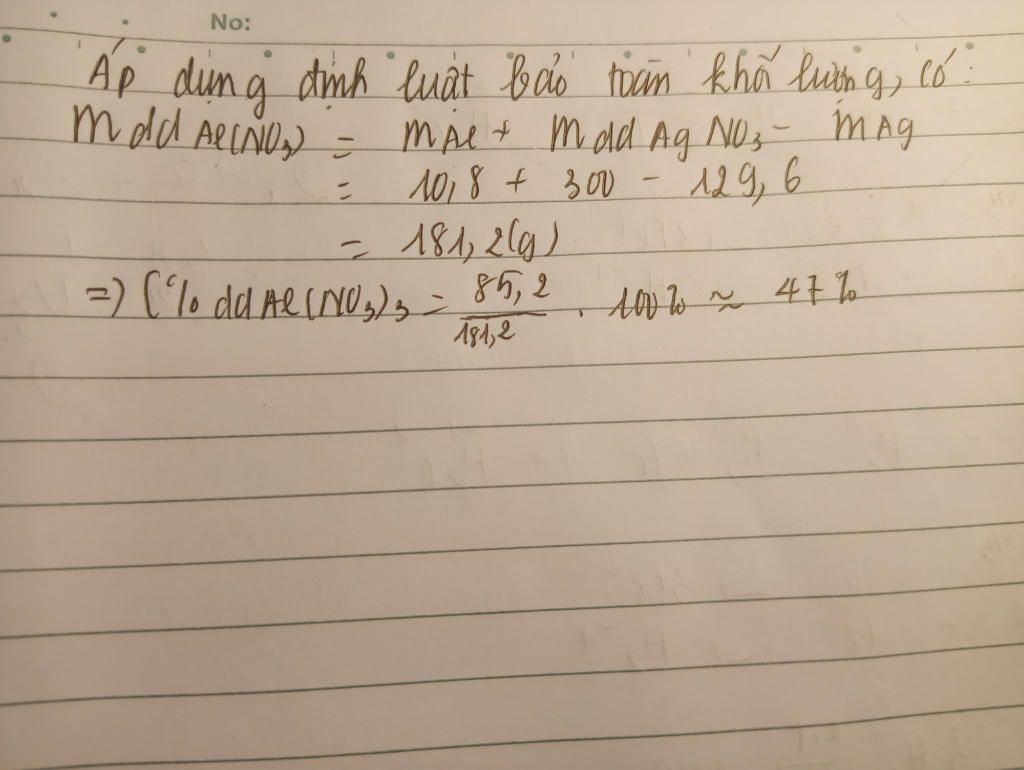 No:
Áp dụng định luật bảo toàn khối lượng, có:
m dd Al(NO₃) = mAl + m dd AgNO₃ - mAg
= 10,8 + 300 - 129,6
= 181,2(g)
=> C% dd Al(NO₃)₃ = 85,2/181,2 . 100% ≈ 47%